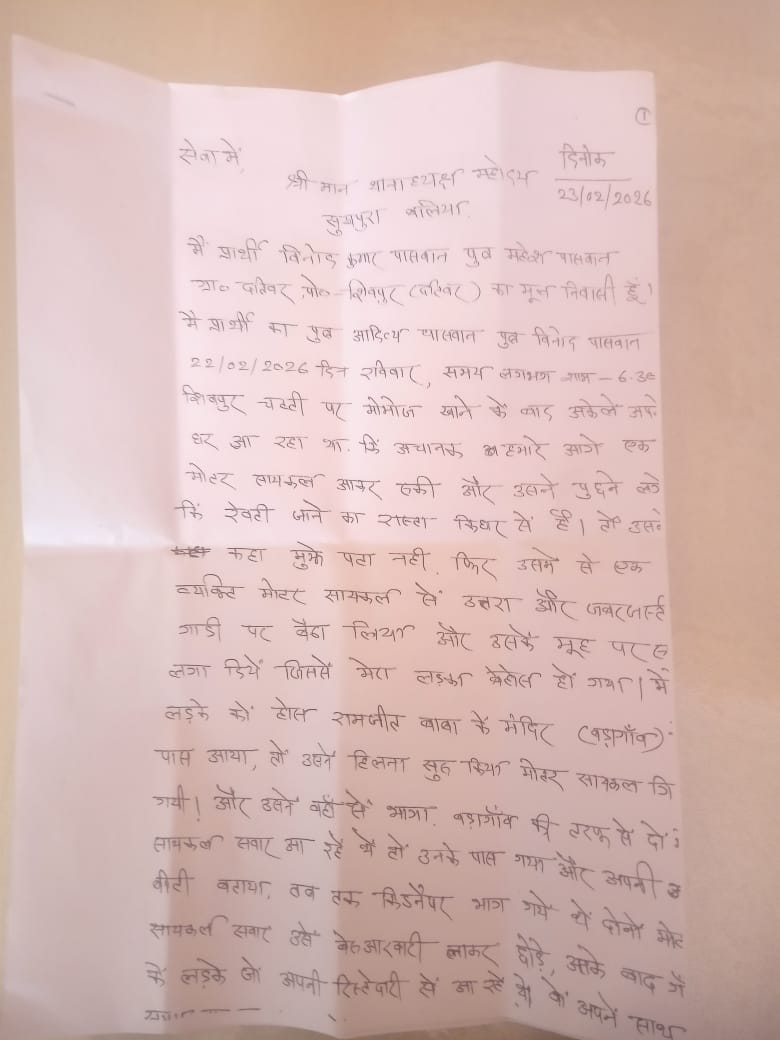 ①
सेवा में,
दिनांक
श्री मान थानाध्यक्ष महोदय
23/02/2026
सुखपुरा बलिया.
मैं प्रार्थी विनोद कुमार पासवान पुत्र महेश पासवान
ग्रा० दतिवर पो०-शिवपुर (दतिवर) का मूल निवासी हूं।
मैं प्रार्थी का पुत्र आदित्य पासवान पुत्र विनोद पासवान
22/02/2026 दिन रविवार, समय लगभग शाम - 6.3
शिवपुर चट्टी पर मोमोज खाने के बाद अकेले अपने
घर आ रहा था. कि अचानक हमारे आगे एक
मोटर सायकल आकर रुकी और उसने पुछने लगे
कि रेवती जाने का रास्ता किधर से है। तो उसने
कहा मुझे पता नहीं. फिर उसमें से एक
व्यक्ति मोटर सायकल से उतरा और जबरजस्ती
गाडी पर बैठा लिया और उसके मूह पर
लगा दिये जिससे मेरा लड़का बेहोस हो गया। मे
लड़के को होस रामजीत बाबा के मंदिर (बड़ागाँव)
पास आया, तो उसने हिलना सुरु किया मोटर सायकल गि
गयी। और उसने वहाँ से भागा. बड़ागाँव की तरफ से दो
सायकल सवार आ रहे थे तो उनके पास गया और अपनी
बीती बताया. तब तक किडनैपर भाग गये थे दोनो मोट
सायकल सवार उसे लाकर छोड़े, उसके बाद गाँ
के लड़के जो अपनी रिस्तेदारी से आ रहे थे वो अपने साथ